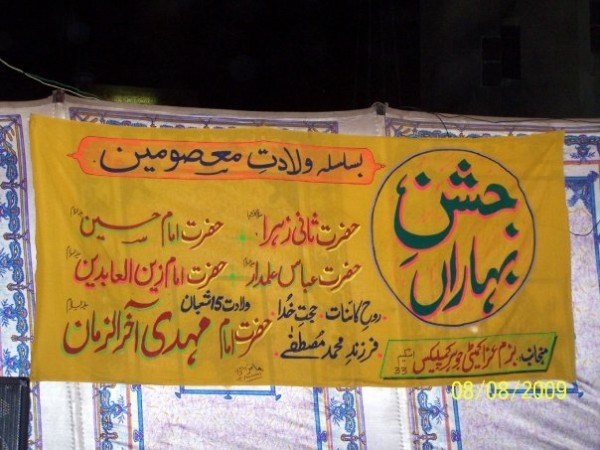 جشن
بہاراں
بسلسلہ ولادتِ معصومین
حضرت ثانی زہرا حضرت امام حسین
حضرت عباس علمدار حضرت امام زین العابدین
روحِ کائنات۔ حجتِ خدا ولادت 15 شعبان
فرزندِ محمد مصطفٰے حضرت امام مہدی آخر الزمان
منجانب: بزم عزا کمیٹی جوہر کمپلیکس
08/08/2009